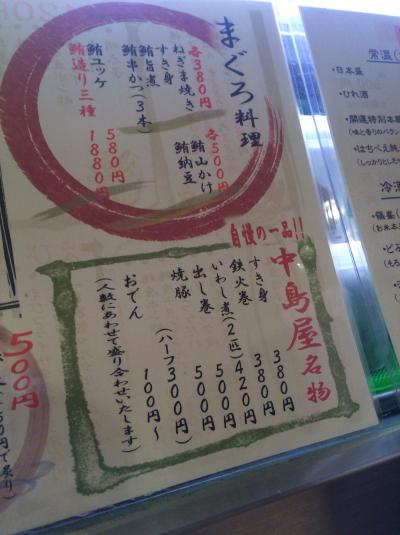 まぐろ料理
各380円
ねぎま焼き
すき身
鮪旨煮
鮪串かつ(3本)
各500円
鮪山かけ
鮪納豆
鮪ユッケ 580円
鮪造り三種 1880円
自慢の一品!!
中島屋名物
すき身 380円
鉄火巻 380円
いわし煮(2匹) 420円
出し巻 500円
焼豚 500円
(ハーフ300円)
おでん 100円〜
(人数にあわせて盛り合わせいたします)
500円
50円で炙り)
常温(
・日本盛
・ひれ酒
・開運特別本
(味と香りのバラン
・はちべえ純
(しっかりとした
冷
(お米本
・ど
(もろ